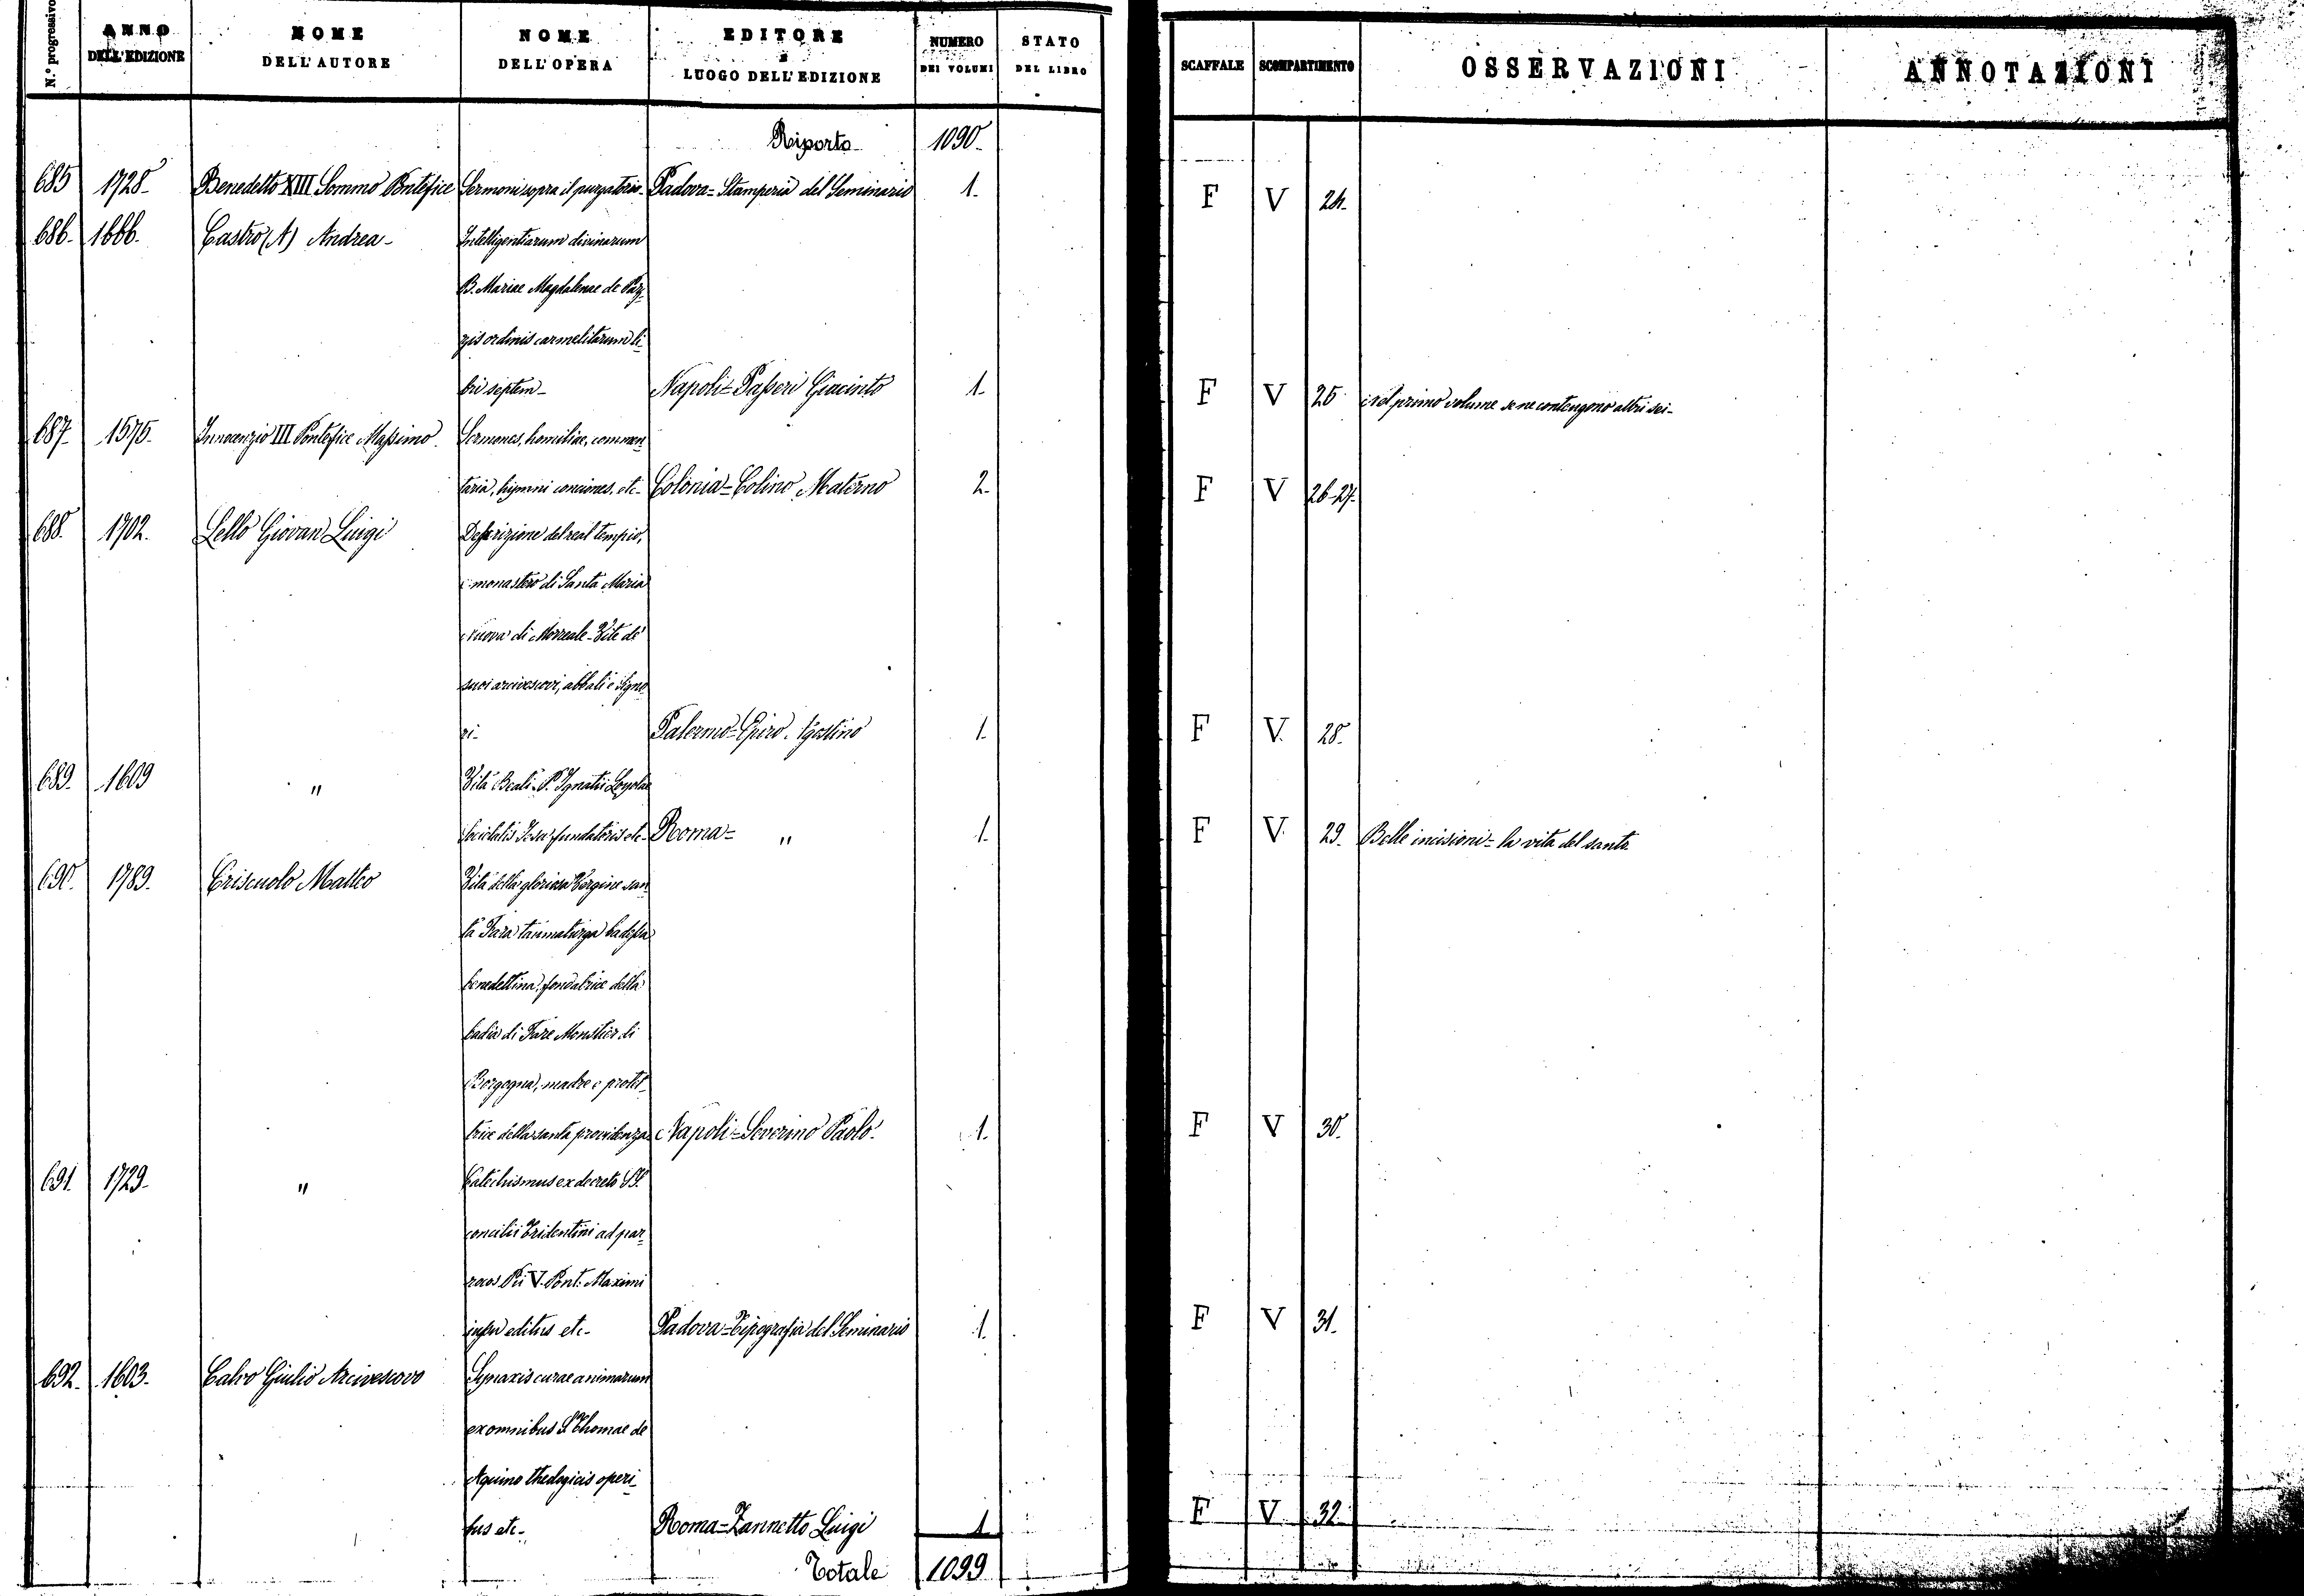 N.° progressivo
ANNO DELL'EDIZIONE
NOME DELL'AUTORE
NOME DELL'OPERA
EDITORE E LUOGO DELL'EDIZIONE
NUMERO DEI VOLUMI
STATO DEL LIBRO
SCAFFALE
SCOMPARTIMENTO
OSSERVAZIONI
ANNOTAZIONI
Riporto 1090
685 1728 Benedetto XIII Sommo Pontefice Sermoni sopra il purgatorio Padova = Stamperia del Seminario 1 F V 24
686 1666 Castro (A) Andrea Intelligentiarum divinarum
B. Mariae Magdalenae de Paz-
zis ordinis carmelitarum li-
bri septem Napoli = Passeri Giacinto 1 F V 25 Nel primo volume se ne contengono altri sei
687 1575 Innocenzio III Pontefice Massimo Sermones, homiliae, commen-
taria, hymni conciones, etc Colonia = Colino Materno 2 F V 26-27
688 1702 Lello Giovan Luigi Descrizione del real tempio,
e monastero di Santa Maria
nuova di Morreale - Vite de'
suoi arcivescovi, abbati e signo-
ri Palermo = Epiro Agostino 1 F V 28
689 1609 " Vita Beati P. Ignatii Loyolae
Societatis Iesu fundatoris etc Roma = " 1 F V 29 Belle incisioni = la vita del santo
690 1789 Criscuolo Matteo Vita della gloriosa Vergine san-
ta Fara taumaturga badessa
benedettina, fondatrice della
badia di Fare Monstier di
Borgogna, madre e protet-
trice della santa providenza Napoli = Severino Paolo 1 F V 30
691 1729 " Catechismus ex decreto SS.
concilii Tridentini ad par-
rocos Pii V. Pont. Maximi
iussu editus etc Padova = Tipografia del Seminario 1 F V 31
692 1603 Calvo Giulio Arcivescovo Synaxis curae animarum
ex omnibus S. Thomae de
Aquino theologicis operi-
bus etc Roma = Zannetto Luigi 1 F V 32
Totale 1099